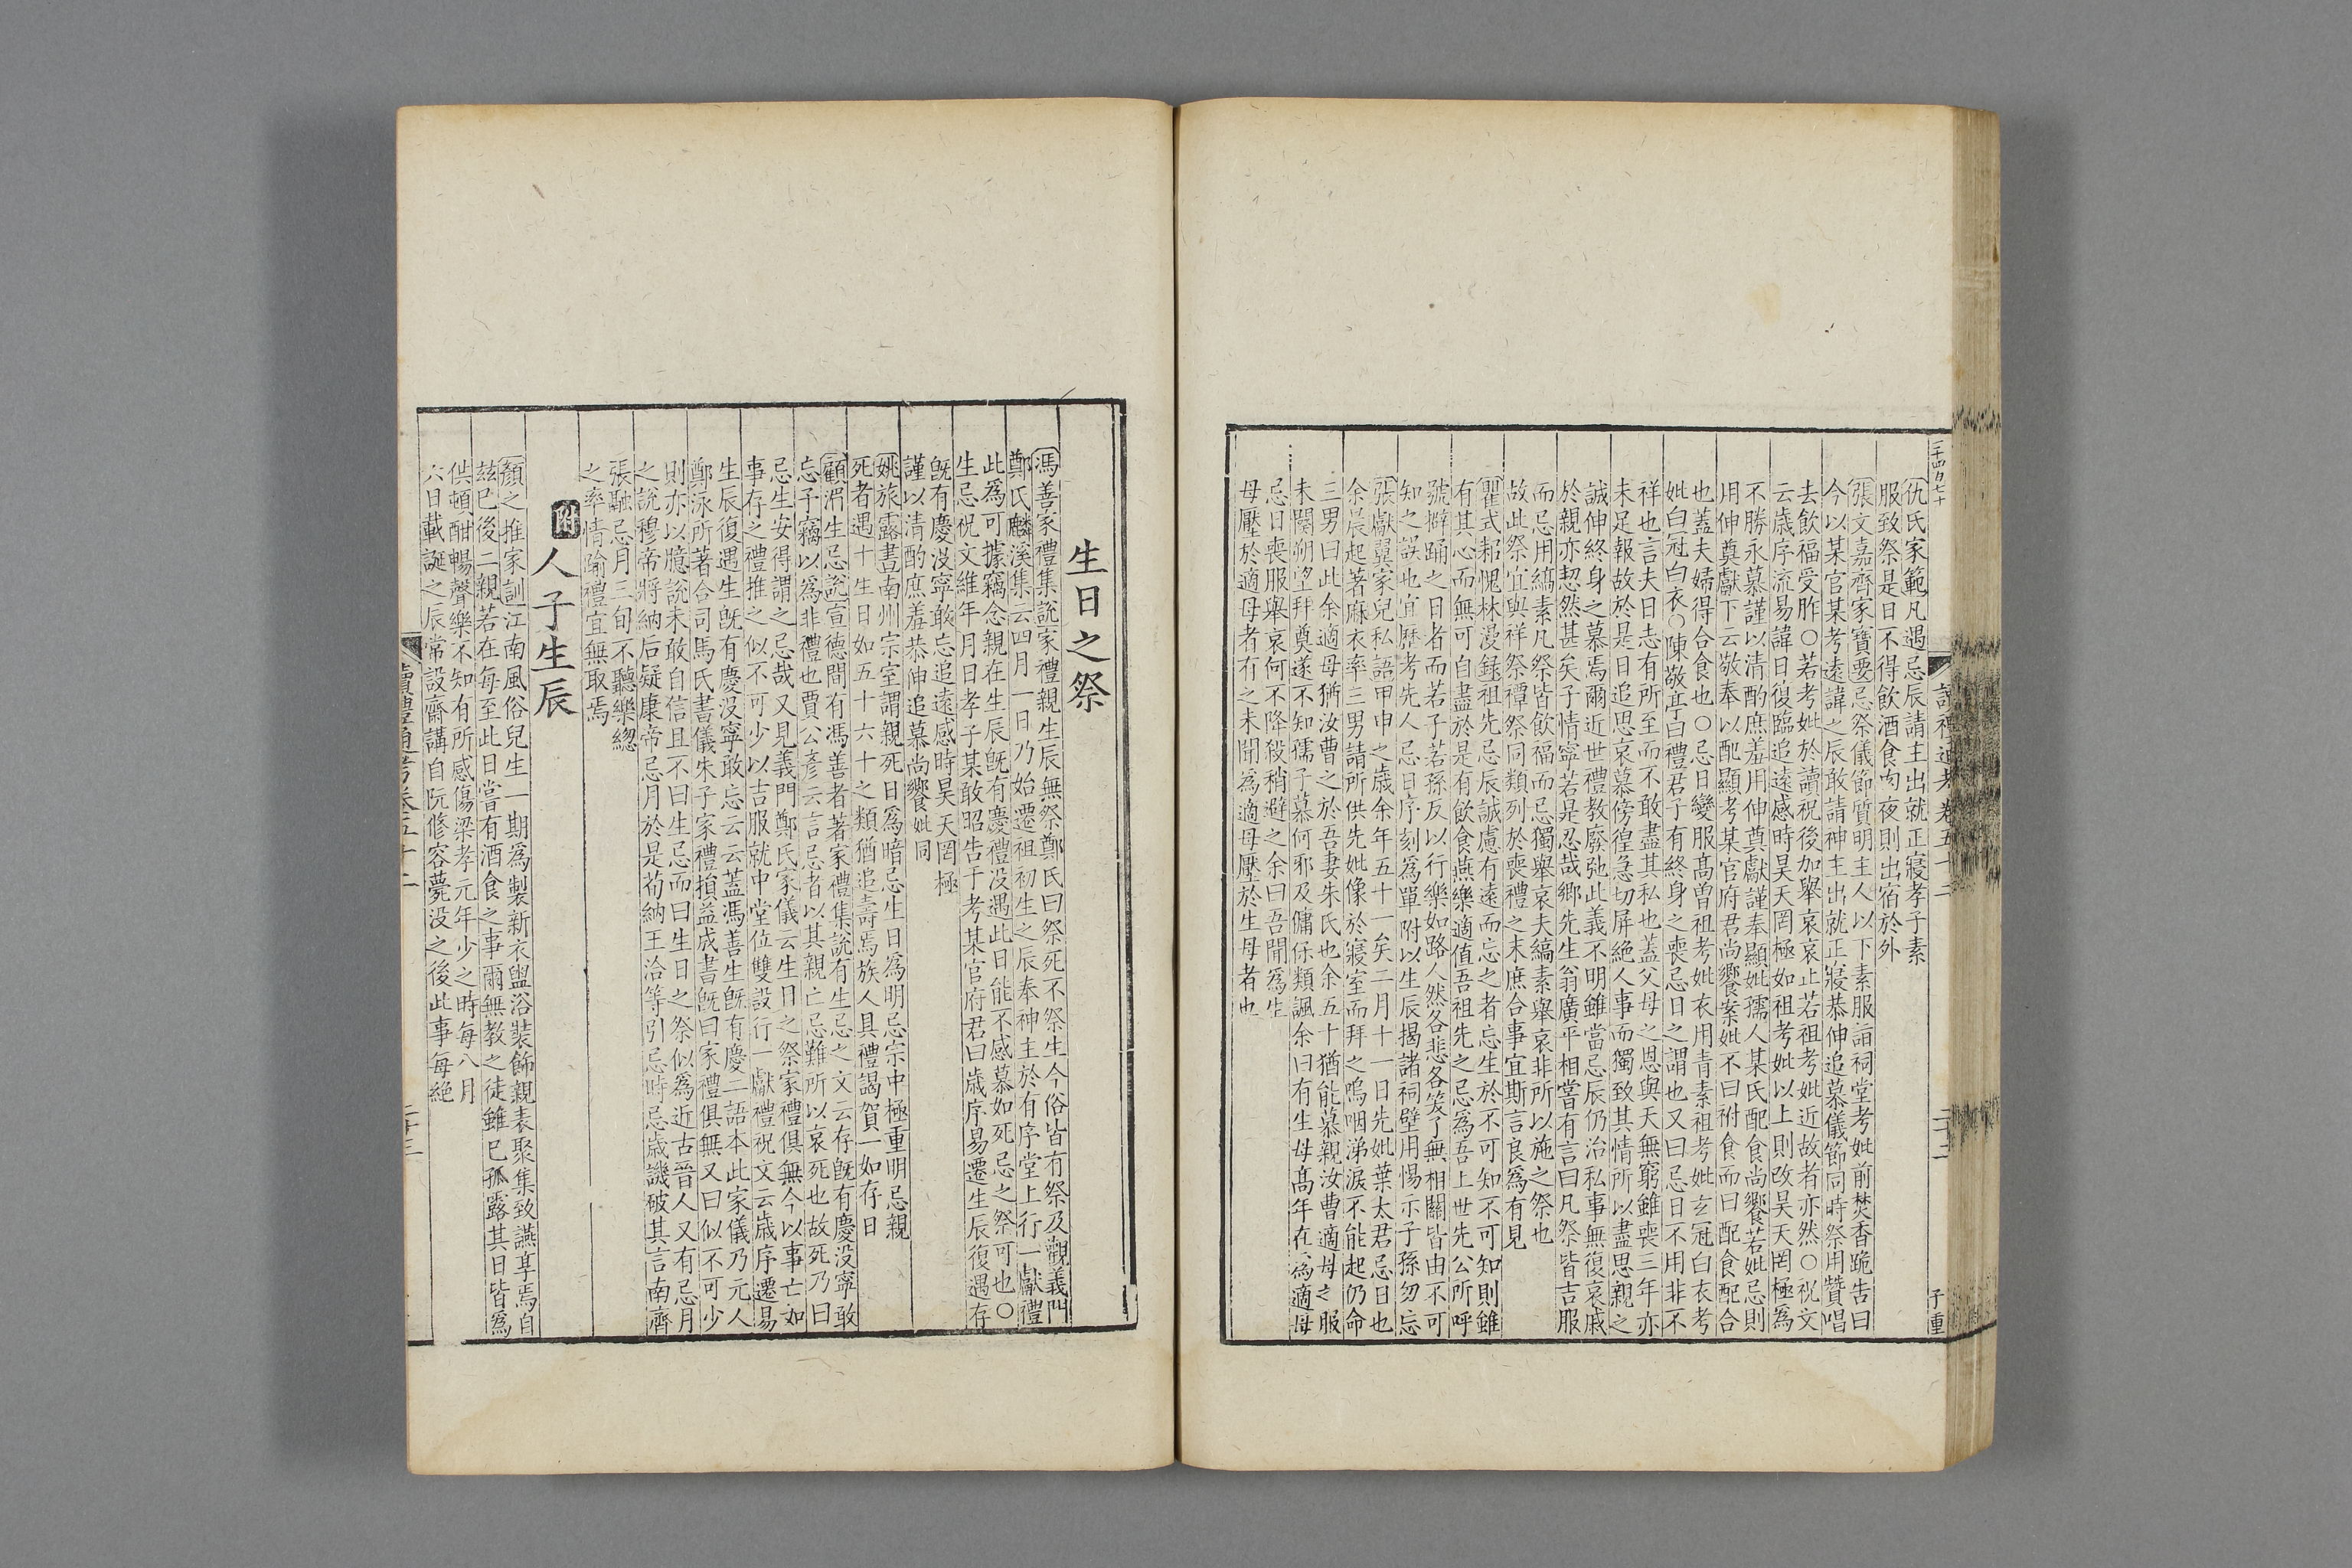 仇氏家範凡遇忌辰請主出就正寢孝子素
服致祭是日不得飲酒食肉夜則出宿於外
張文嘉齊家寶要忌祭儀節質明主人以下素服詣祠堂考妣前焚香跪告曰
今以某官某考遠諱之辰敢請神主出就正寢恭伸追慕儀節同時祭用贊唱
去飲福受胙○若考妣於讀祝後加舉哀哀止若祖考妣近故者亦然○祝文
云歲序流易諱日復臨追遠感時昊天罔極如祖考妣以上則改昊天罔極爲
不勝永慕謹以清酌庶羞用伸奠獻謹奉顯妣孺人某氏配食尚饗若妣忌則
用伸奠獻下云敬奉以配顯考某官府君尚饗案妣不曰祔食而曰配食配合
也蓋夫婦得合食也○忌日變服高曾祖考妣衣用青素祖考妣玄冠白衣考
妣白冠白衣○陳敬亭曰禮君子有終身之喪忌日之謂也又曰忌日不用非不
祥也言夫日志有所至而不敢盡其私也蓋父母之恩與天無窮雖喪三年亦
未足報故於是日追思哀慕傍徨急切屏絕人事而獨致其情所以盡思親之
誠伸終身之慕焉爾近世禮教廢弛此義不明雖當忌辰仍治私事無復哀戚
於親亦恝然甚矣子情寧若是忍哉鄉先生翁廣平相嘗有言曰凡祭皆吉服
而忌用縞素凡祭皆飲福而忌獨舉哀夫縞素舉哀非所以施之祭也
故此祭宜與祥祭禫祭同類列於喪禮之末庶合事宜斯言良爲有見
瞿式耜愧林漫錄祖先忌辰誠慮有遠而忘之者忘生於不可知不可知則雖
有其心而無可自盡於是有飲食燕樂適值吾祖先之忌爲吾上世先公所呼
號擗踊之日者而若子若孫反以行樂如路人然各悲各笑了無相關皆由不可
知之誤也宜歷考先人忌日序刻爲單附以生辰揭諸祠壁用惕示子孫勿忘
張獻翼家兒私語甲申之歲余年五十一矣二月十一日先妣葉太君忌日也
余晨起著麻衣率三男請所供先妣像於寢室而拜之嗚咽涕淚不能起仍命
三男曰此余適母猶汝曹之於吾妻朱氏也余五十猶能慕親汝曹適母之服
未闋朔望拜奠遂不知孺子慕何邪及傭保類諷余曰有生母高年在爲適母
忌日喪服舉哀何不降殺稍避之余曰吾聞爲生
母壓於適母者有之未聞爲適母壓於生母者也
讀禮通考卷五十二
二十二
子重
生日之祭
馮善家禮集說家禮親生辰無祭鄭氏曰祭死不祭生今俗皆有祭及觀義門
鄭氏麟溪集云四月一日乃始遷祖初生之辰奉神主於有序堂上行一獻禮
此爲可據竊念親在生辰既有慶禮没遇此日能不感慕如死忌之祭可也○
生忌祝文維年月日孝子某敢昭告于考某官府君曰歲序易遷生辰復遇存
既有慶没寧敢忘追遠感時昊天罔極
謹以清酌庶羞恭伸追慕尚饗妣同
姚旅露書南州宗室謂親死日爲暗忌生日爲明忌宗中極重明忌親
死者遇十生日如五十六十之類猶追壽焉族人具禮謁賀一如存日
顧湄生忌說宣德間有馮善者著家禮集說有生忌之文云存既有慶没寧敢
忘予竊以爲非禮也賈公彥云言忌者以其親亡忌難所以哀死也故死乃曰
忌生安得謂之忌哉又見義門鄭氏家儀云生日之祭家禮俱無今以事亡如
事存之禮推之似不可少以吉服就中堂位雙設行一獻禮祝文云歲序遷易
生辰復遇生既有慶没寧敢忘云云蓋馮善生既有慶二語本此家儀乃元人
鄭泳所著合司馬氏書儀朱子家禮損益成書既曰家禮俱無又曰似不可少
則亦以臆說未敢自信且不曰生忌而曰生日之祭似爲近古晉人又有忌月
之說穆帝將納后疑康帝忌月於是荀納王洽等引忌時忌歲譏破其言南齊
張融忌月三旬不聽樂總
之率情踰禮宜無取焉
附人子生辰
顏之推家訓江南風俗兒生一期爲製新衣盥浴裝飾親表聚集致讌享焉自
茲已後二親若在每至此日嘗有酒食之事爾無教之徒雖已孤露其日皆爲
供頓酣暢聲樂不知有所感傷梁孝元年少之時每八月
六日載誕之辰常設齋講自阮修容薨没之後此事每絕
讀禮通考卷五十二
二十三